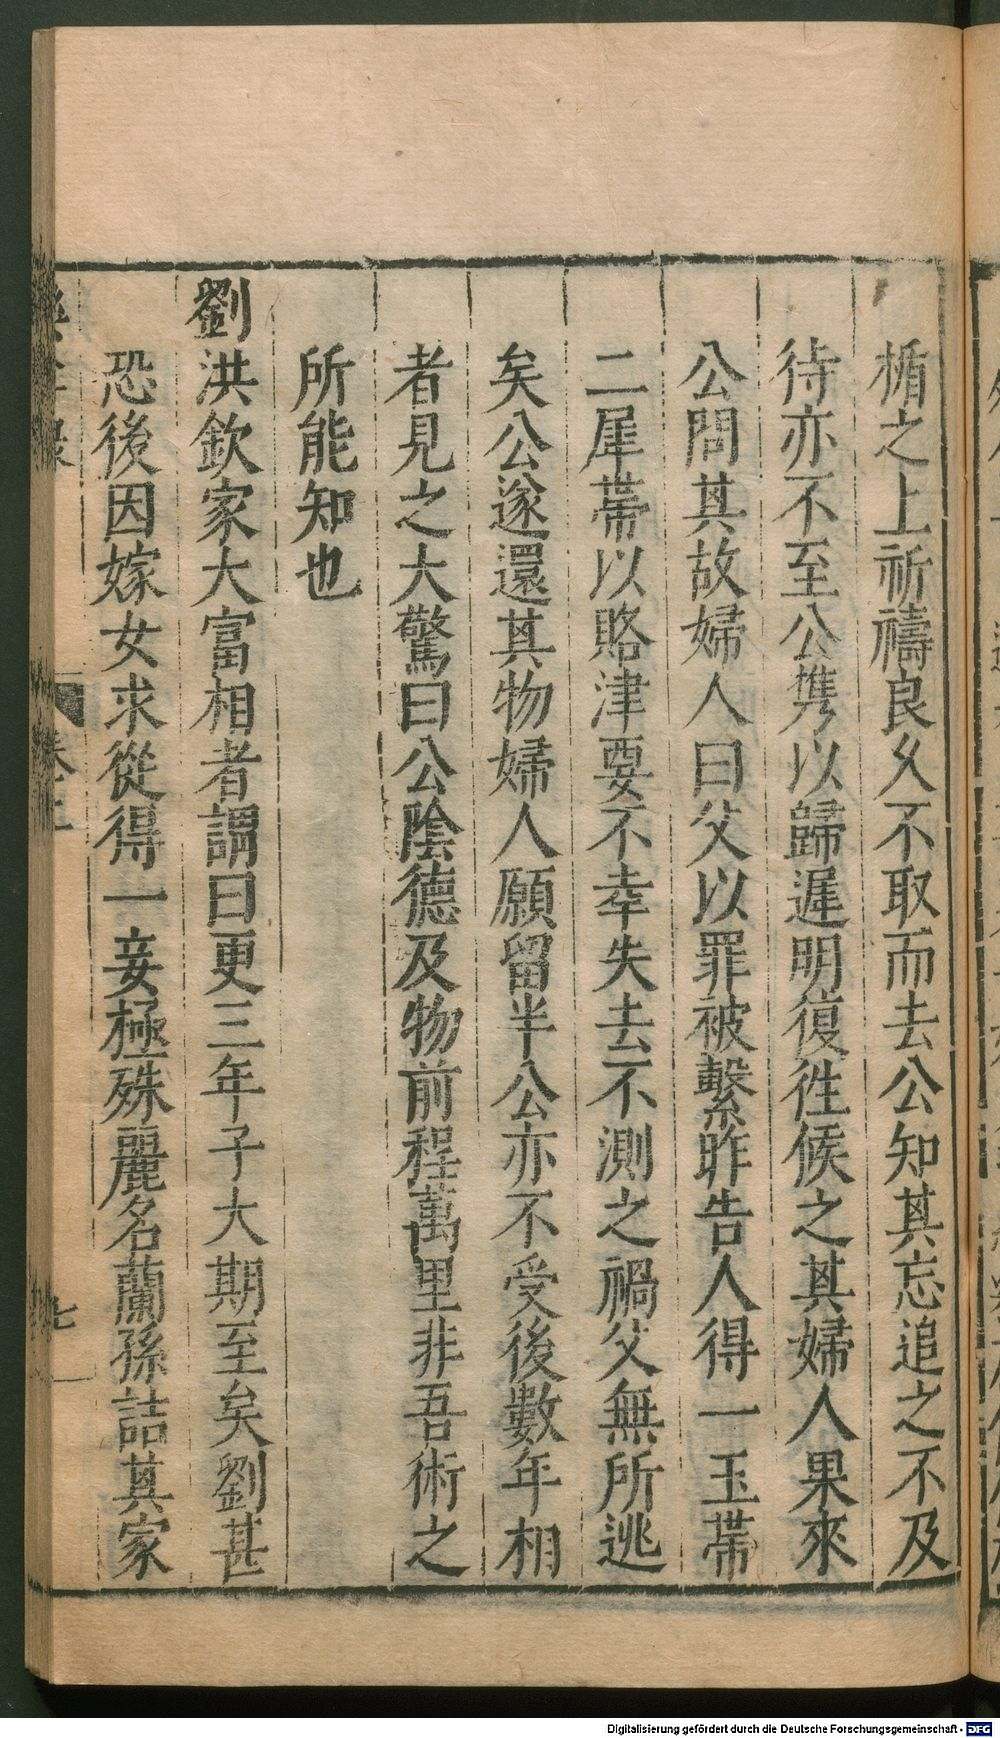 楯之上祈禱良久不取而去公知其忘追之不及
待亦不至公携以歸遲明復徃候之其婦人果來
公問其故婦人曰父以罪被繫昨告人得一玉帶
二犀帶以賂津要不幸失去不測之禍父無所逃
矣公遂還其物婦人願留半公亦不受後數年相
者見之大驚曰公陰德及物前程萬里非吾術之
所能知也
劉洪欽家大富相者謂曰更三年子大期至矣劉甚
恐後因嫁女求從得一妾極殊麗名蘭孫詰其家
七
Digitalisierung gefördert durch die Deutsche Forschungsgemeinschaft - DFG